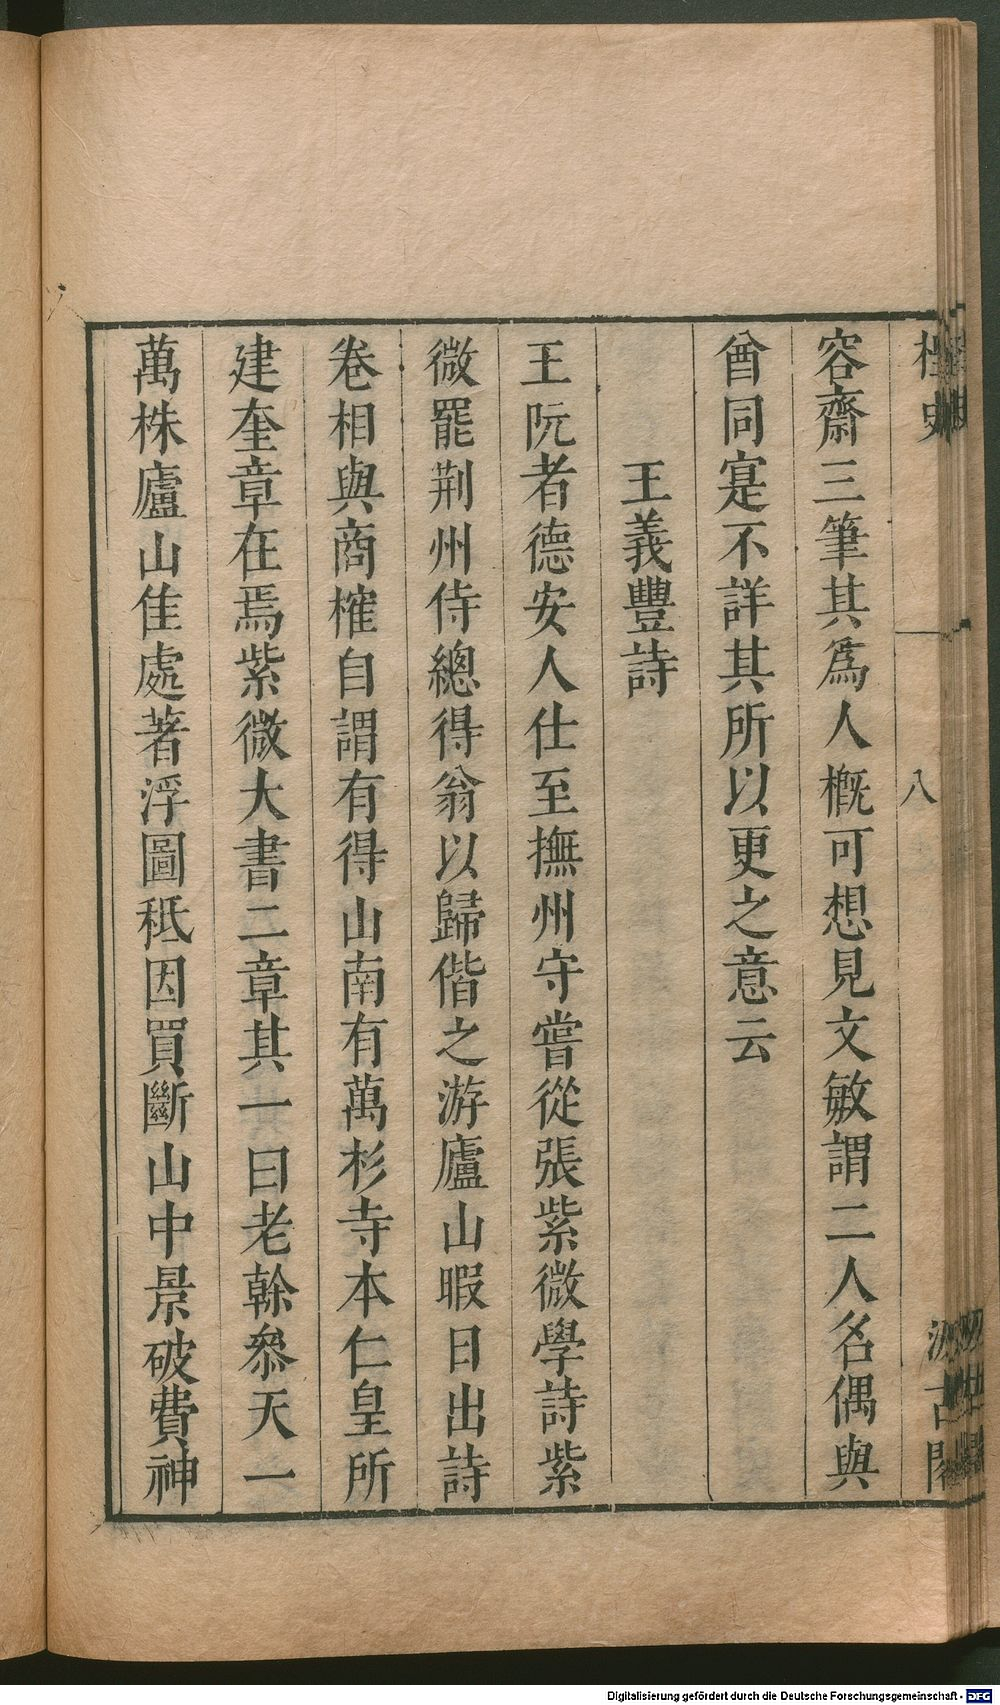 桯史
八
汲古閣
容齋三筆其爲人槪可想見文敏謂二人名偶與
酋同寔不詳其所以更之意云
王義豐詩
王阮者德安人仕至撫州守嘗從張紫微學詩紫
微罷荆州侍總得翁以歸偕之游廬山暇日出詩
卷相與商榷自謂有得山南有萬杉寺本仁皇所
建奎章在焉紫微大書二章其一曰老榦叅天一
萬株廬山佳處著浮圖秪因買斷山中景破費神
Digitalisierung gefördert durch die Deutsche Forschungsgemeinschaft - DFG